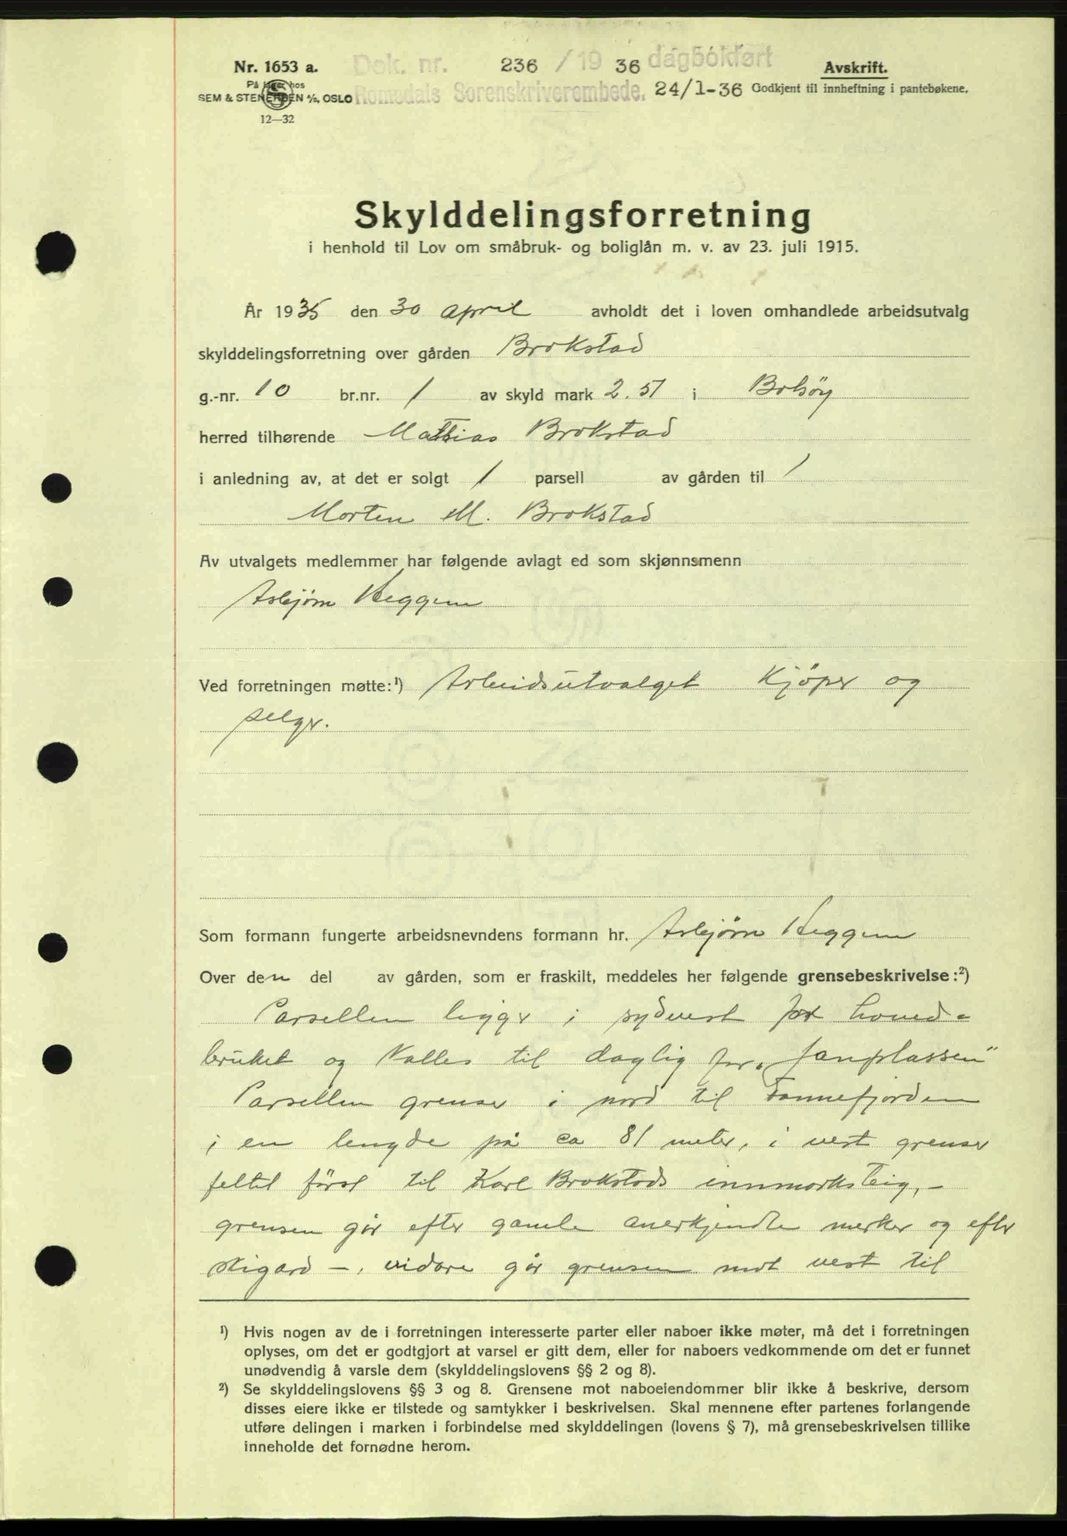 Nr. 1653 a.
På lager hos
SEM & STENERSEN A/S, OSLO
12—32
Dok. nr. 236 / 19 36 dagbokført
Romsdals Sorenskriverembede. 24/1-36
Avskrift.
Godkjent til innheftning i pantebøkene.
Skylddelingsforretning
i henhold til Lov om småbruk- og boliglån m. v. av 23. juli 1915.
År 1935 den 30 april avholdt det i loven omhandlede arbeidsutvalg
skylddelingsforretning over gården Brokstad
g.-nr. 10 br.nr. 1 av skyld mark 2.51 i Bolsøy
herred tilhørende Mathias Brokstad
i anledning av, at det er solgt 1 parsell av gården til
Morten M. Brokstad
Av utvalgets medlemmer har følgende avlagt ed som skjønnsmenn
Asbjørn Heggem
Ved forretningen møtte:¹) Arbeidsutvalget Kjöper og
selger.
Som formann fungerte arbeidsnevndens formann hr. Asbjørn Heggem
Over den del av gården, som er fraskilt, meddeles her følgende grensebeskrivelse:²)
Parsellen ligger i sydvest for hoved=
bruket og kalles til daglig for "Janplassen"
Parsellen grenser i nord til Fannefjorden
i en lengde på ca 81 meter, i vest grenser
feltet først til Karl Brokstads innmarksteig, -
grensen går efter gamle anerkjendte merker og efter
skigard -, vidare går grensen mot vest til
¹) Hvis nogen av de i forretningen interesserte parter eller naboer ikke møter, må det i forretningen
oplyses, om det er godtgjort at varsel er gitt dem, eller for naboers vedkommende om det er funnet
unødvendig å varsle dem (skylddelingslovens §§ 2 og 8).
²) Se skylddelingslovens §§ 3 og 8. Grensene mot naboeiendommer blir ikke å beskrive, dersom
disses eiere ikke er tilstede og samtykker i beskrivelsen. Skal mennene efter partenes forlangende
utføre delingen i marken i forbindelse med skylddelingen (lovens § 7), må grensebeskrivelsen tillike
inneholde det fornødne herom.